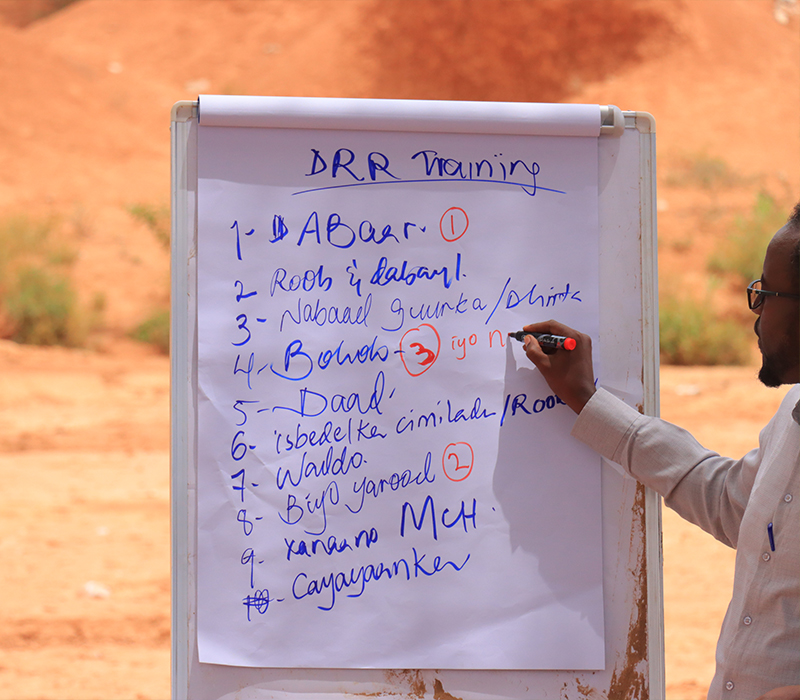 DRR Training
1- ABaar. ①
2 Roob & dabayl.
3- Nabaad guurka/Dhirta
4- Bohol- ③ iyo n
5- Daad
6- isbedelka cimilada/Roob
7- Waldo.
8- Biyo yarood ②
9- xanaano MCH.
10- Cayayaanka